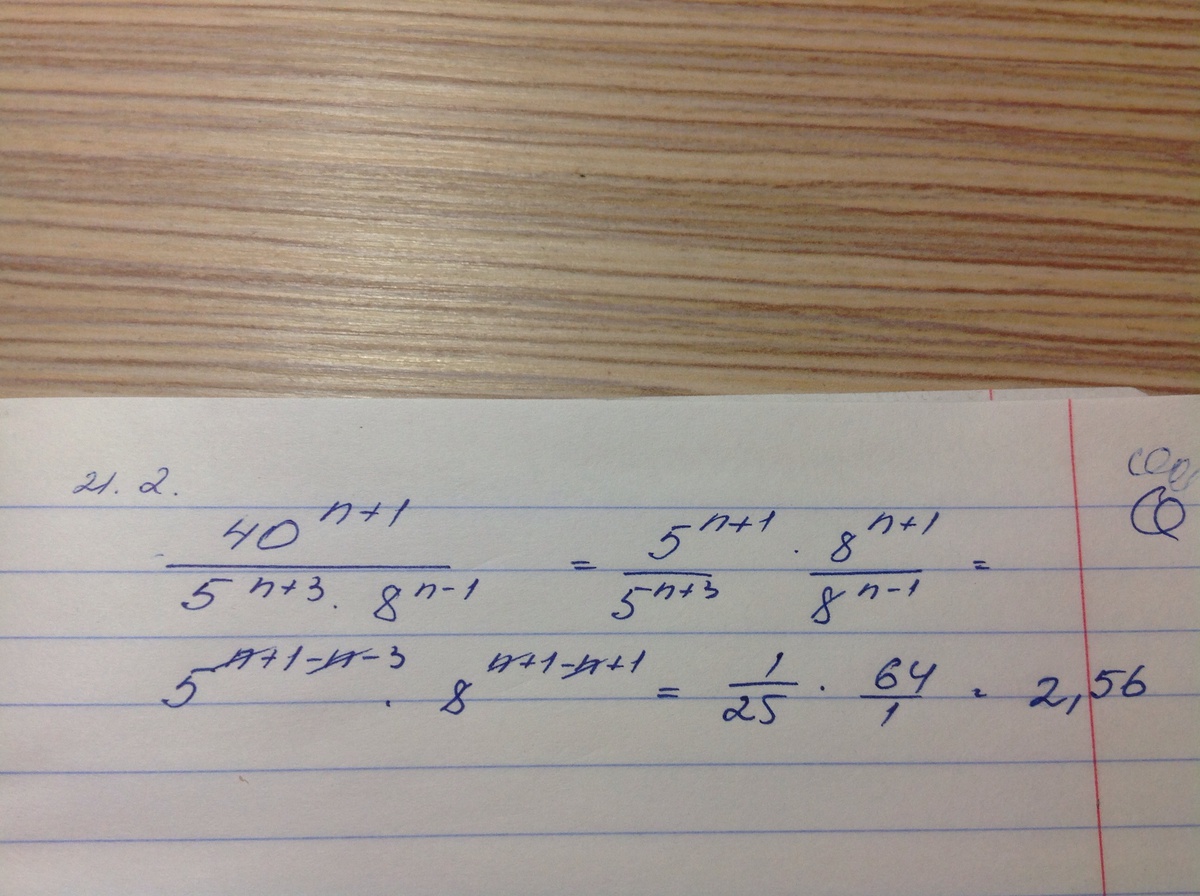 21. 2.
40^{n+1} / (5^{n+3} · 8^{n-1}) = 5^{n+1} / 5^{n+3} · 8^{n+1} / 8^{n-1} =
5^{n+1-n-3} · 8^{n+1-n+1} = 1/25 · 64/1 = 2,56